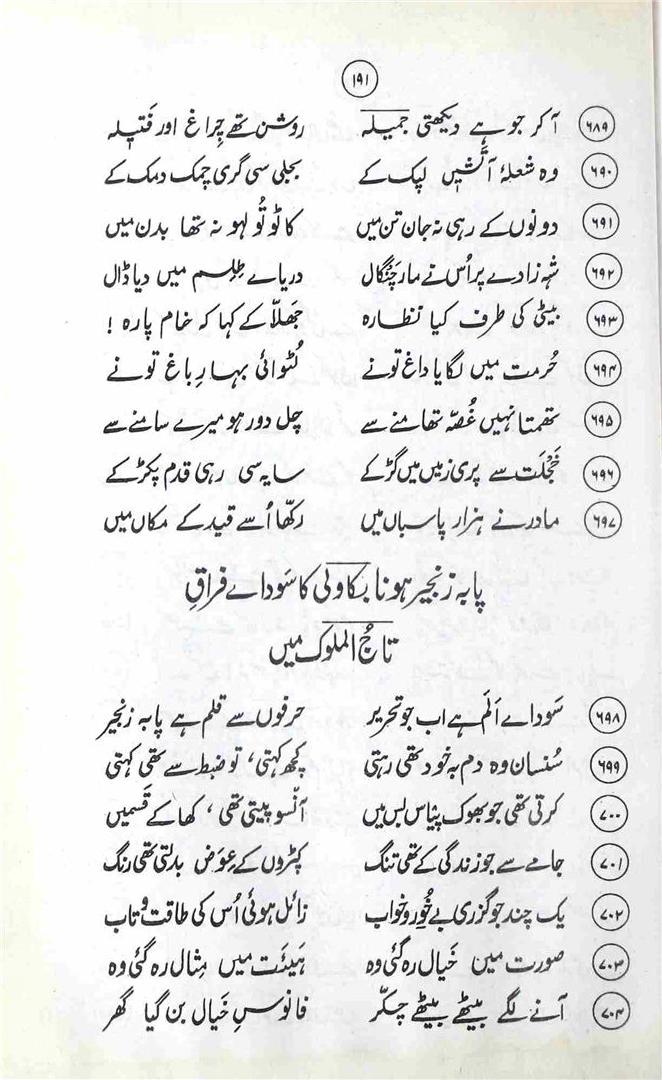 ۱۹۱
۶۸۹ آ کر جو ہے دیکھتی جمیلہ روشن تھے چراغ اور فتیلہ
۶۹۰ وہ شعلۂ آتشیں لپک کے بجلی سی گری چمک دمک کے
۶۹۱ دونوں کے رہی نہ جان تن میں کاٹو تُو لہو نہ تھا بدن میں
۶۹۲ شہ زادے پر اُس نے مار چنگال دریاے طِلِسم میں دیا ڈال
۶۹۳ بیٹی کی طرف کیا نظارہ جھلّا کے کہا کہ خام پارہ !
۶۹۴ حُرمت میں لگایا داغ تونے لُٹوائی بہارِ باغ تونے
۶۹۵ تھمتا نہیں غُصّہ تھامنے سے چل دور ہو میرے سامنے سے
۶۹۶ خَجْلَت سے پری زمیں میں گڑ کے سایہ سی رہی قدم پکڑ کے
۶۹۷ مادر نے ہزار پاسباں میں رکھّا اُسے قید کے مکاں میں
پابہ زنجیر ہونا بکاولی کا سَوداے فراقِ
تاجُ الملوک میں
۶۹۸ سَوداے اَلَم ہے اب جو تحریر حرفوں سے قلم ہے پابہ زنجیر
۶۹۹ سُنسان وہ دم بہ خود تھی رہتی کچھ کہتی، تو ضبط سے تھی کہتی
۷۰۰ کرتی تھی جو بھوک پیاس بس میں آنسو پیتی تھی، کھا کے قَسمیں
۷۰۱ جامے سے جو زندگی کے تھی تنگ کپڑوں کے عِوَض بدلتی تھی رنگ
۷۰۲ یک چند جو گزری بے خُور و خواب زائل ہوئی اُس کی طاقت و تاب
۷۰۳ صورت میں خیال رہ گئی وہ ہیئت میں مِثال رہ گئی وہ
۷۰۴ آنے لگے بیٹھے بیٹھے چکّر فانوسِ خیال بن گیا گھر